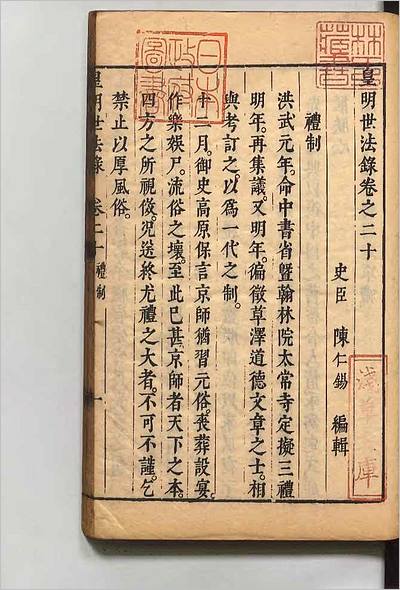 皇明世法錄卷之二十
史臣 陳仁錫 編輯
禮制
洪武元年。命中書省曁翰林院太常寺定擬三禮
明年。再集議。又明年。徧徵草澤道德文章之士。相
與考訂之。以爲一代之制。
十二月。御史高原保言京師猶習元俗。喪葬設宴。
作樂娛尸。流俗之壞。至此已甚。京師者天下之本。
四方之所視傚。况送終尤禮之大者。不可不謹。乞
禁止以厚風俗。
皇明世法錄 卷二十 禮制 一
日本
政府
圖書
林氏
藏書
淺草
庫